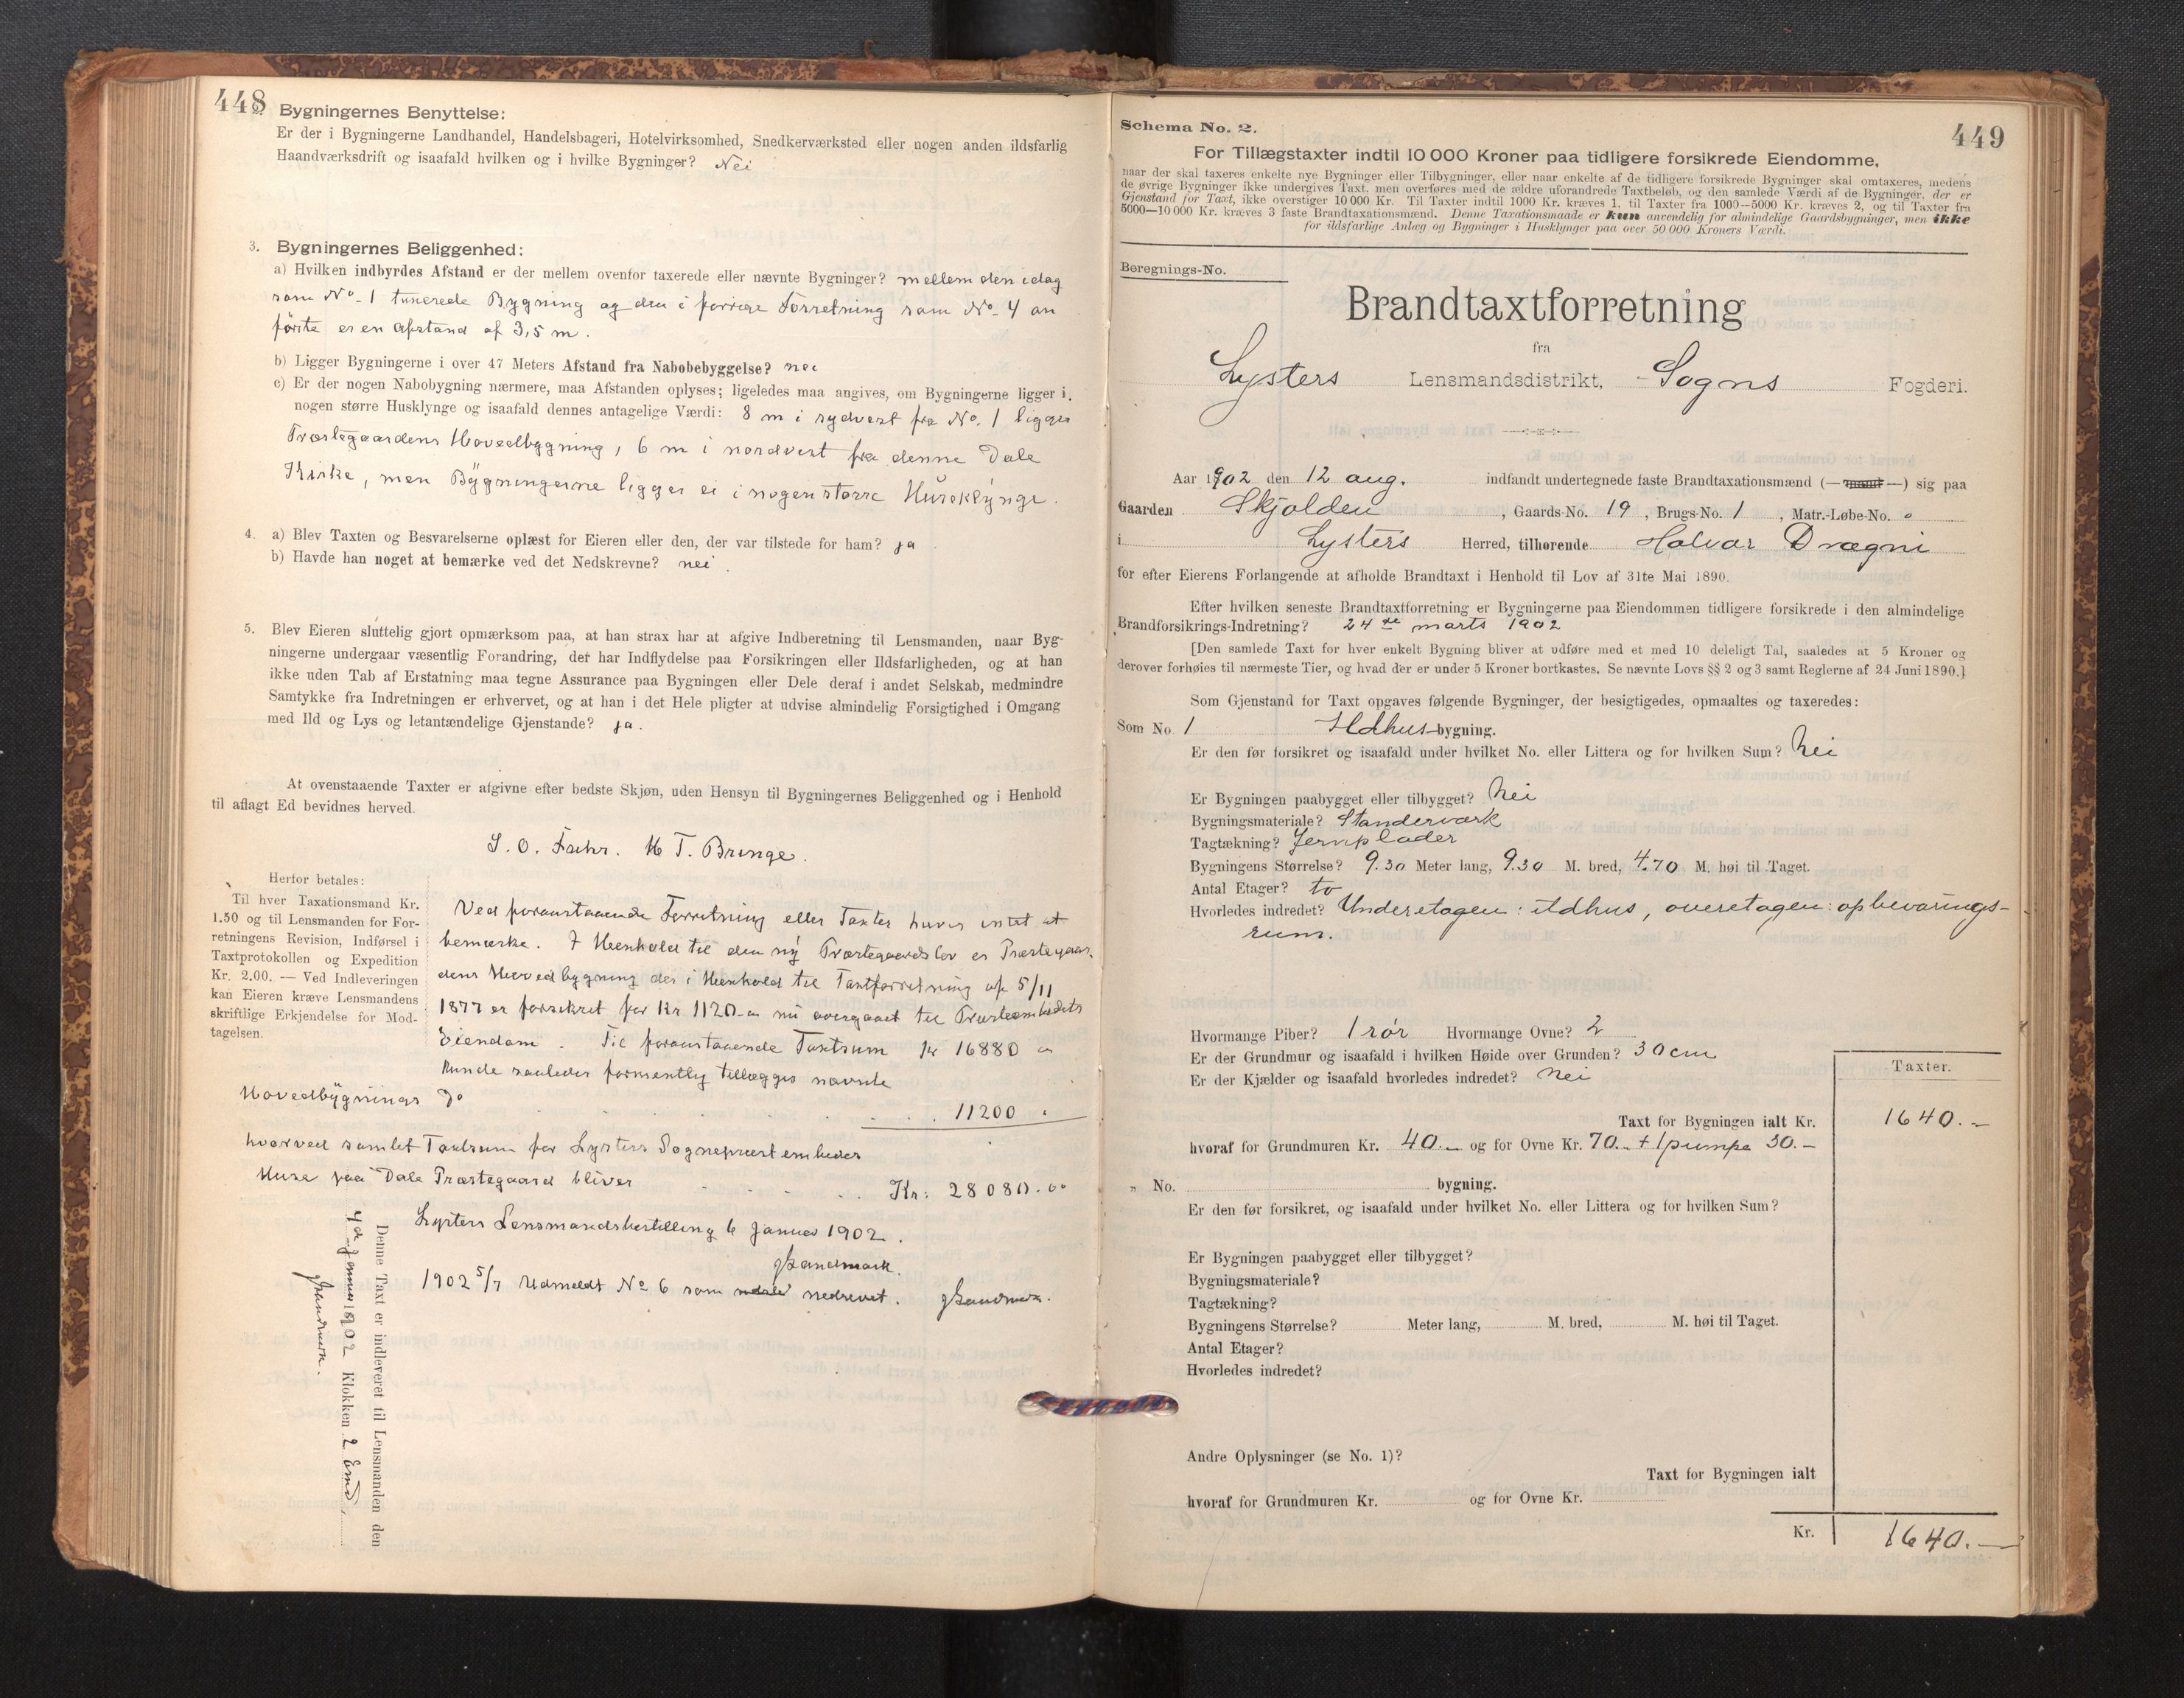 448
2. Bygningernes Benyttelse:
Er der i Bygningerne Landhandel, Handelsbageri, Hotelvirksomhed, Snedkerværksted eller nogen anden ildsfarlig
Haandværksdrift og isaafald hvilken og i hvilke Bygninger? Nei
3. Bygningernes Beliggenhed:
a) Hvilken indbyrdes Afstand er der mellem ovenfor taxerede eller nævnte Bygninger? mellem den idag
som No. 1 taxerede Bygning og den i forrige Forretning som No. 4 an
førte er en Afstand af 3,5 m.
b) Ligger Bygningerne i over 47 Meters Afstand fra Nabobebyggelse? nei
c) Er der nogen Nabobygning nærmere, maa Afstanden oplyses; ligeledes maa angives, om Bygningerne ligger i
nogen større Husklynge og isaafald dennes antagelige Værdi: 8 m i sydvest fra No. 1 ligger
Præstegaardens Hovedbygning, 6 m i nordvest fra denne Dale
Kirke, men Bygningerne ligger ei i nogen større Huseklynge.
4. a) Blev Taxten og Besvarelserne oplæst for Eieren eller den, der var tilstede for ham? ja
b) Havde han noget at bemærke ved det Nedskrevne? nei.
5. Blev Eieren sluttelig gjort opmærksom paa, at han strax har at afgive Indberetning til Lensmanden, naar Byg-
ningerne undergaar væsentlig Forandring, det har Indflydelse paa Forsikringen eller Ildsfarligheden, og at han
ikke uden Tab af Erstatning maa tegne Assurance paa Bygningen eller Dele deraf i andet Selskab, medmindre
Samtykke fra Indretningen er erhvervet, og at han i det Hele pligter at udvise almindelig Forsigtighed i Omgang
med Ild og Lys og letantændelige Gjenstande? ja.
At ovenstaaende Taxter er afgivne efter bedste Skjøn, uden Hensyn til Bygningernes Beliggenhed og i Henhold
til aflagt Ed bevidnes herved.
S. O. Fuhr. M T. Bringe.
Herfor betales:
Til hver Taxationsmand Kr.
1.50 og til Lensmanden for For-
retningens Revision, Indførsel i
Taxtprotokollen og Expedition
Kr. 2.00. — Ved Indleveringen
kan Eieren kræve Lensmandens
skriftlige Erkjendelse for Mod-
tagelsen.
Ved foranstaaende Forretning eller Taxter haves intet at
bemærke. I Henhold til den ny Præstegaardslov er Præstegaar-
dens Hovedbygning der i Henhold til Taxtforretning af 5/11
1877 er forsikret for Kr 1120- nu overgaaet til Præsteembedets
Eiendom. Til foranstaaende Taxtsum Kr 16880
Kunde saaledes formentlig tillægges nævnte
Hovedbygnings Do . . . . 11200
hvorved samlet Taxtsum for Lysters Sognepræstembedes
Huse paa Dale Præstegaard bliver . . . Kr: 28080.00
Lysters Lensmandsbestilling 6 Januar 1902.
JSandmark.
1902 5/7 Udmeldt No 6 som nedrevet. JSandmark.
Denne Taxt er indleveret til Lensmanden den
4de Januar 1902 Klokken 2 Emd.
JSandmark.
449
Schema No. 2.
For Tillægstaxter indtil 10 000 Kroner paa tidligere forsikrede Eiendomme,
naar der skal taxeres enkelte nye Bygninger eller Tilbygninger, eller naar enkelte af de tidligere forsikrede Bygninger skal omtaxeres, medens
de øvrige Bygninger ikke undergives Taxt, men overføres med de ældre uforandrede Taxtbeløb, og den samlede Værdi af de Bygninger, der er
Gjenstand for Taxt, ikke overstiger 10 000 Kr. Til Taxter indtil 1000 Kr. kræves 1, til Taxter fra 1000—5000 Kr. kræves 2, og til Taxter fra
5000—10 000 Kr. kræves 3 faste Brandtaxationsmænd. Denne Taxationsmaade er kun anvendelig for almindelige Gaardsbygninger, men ikke
for ildsfarlige Anlæg og Bygninger i Husklynger paa over 50 000 Kroners Værdi.
Beregnings-No.
Brandtaxtforretning
fra
Lysters Lensmandsdistrikt, Sogns Fogderi.
Aar 1902 den 12 aug. indfandt undertegnede faste Brandtaxationsmænd (—mand—) sig paa
Gaarden Skjolden, Gaards-No. 19, Brugs-No. 1, Matr.-Løbe-No. "
i Lysters Herred, tilhørende Halvar Drægni
for efter Eierens Forlangende at afholde Brandtaxt i Henhold til Lov af 31te Mai 1890.
Efter hvilken seneste Brandtaxtforretning er Bygningerne paa Eiendommen tidligere forsikrede i den almindelige
Brandforsikrings-Indretning? 24de marts 1902
[Den samlede Taxt for hver enkelt Bygning bliver at udføre med et med 10 deleligt Tal, saaledes at 5 Kroner og
derover forhøies til nærmeste Tier, og hvad der er under 5 Kroner bortkastes. Se nævnte Lovs §§ 2 og 3 samt Reglerne af 24 Juni 1890.]
Som Gjenstand for Taxt opgaves følgende Bygninger, der besigtigedes, opmaaltes og taxeredes:
Som No. 1 Ildhus-bygning.
Er den før forsikret og isaafald under hvilket No. eller Littera og for hvilken Sum? Nei
Er Bygningen paabygget eller tilbygget? Nei
Bygningsmateriale? Standerværk
Tagtækning? Jernplader
Bygningens Størrelse? 9.30 Meter lang, 9.30 M. bred, 4.70 M. høi til Taget.
Antal Etager? to
Hvorledes indredet? Underetagen: ildhus, overetagen: opbevarings-
rum.
Hvormange Piber? 1 rør Hvormange Ovne? 2
Er der Grundmur og isaafald i hvilken Høide over Grunden? 30 cm
Er der Kjælder og isaafald hvorledes indredet? Nei
Taxter.
Taxt for Bygningen ialt Kr. 1640.-
hvoraf for Grundmuren Kr. 40.- og for Ovne Kr. 70.- + 1 pumpe 30.-
" No. bygning.
Er den før forsikret, og isaafald under hvilket No. eller Littera og for hvilken Sum?
Er Bygningen paabygget eller tilbygget?
Bygningsmateriale?
Tagtækning?
Bygningens Størrelse? Meter lang, M. bred, M. høi til Taget.
Antal Etager?
Hvorledes indredet?
Andre Oplysninger (se No. 1)?
Taxt for Bygningen ialt
hvoraf for Grundmuren Kr. og for Ovne Kr.
Kr. 1640.-